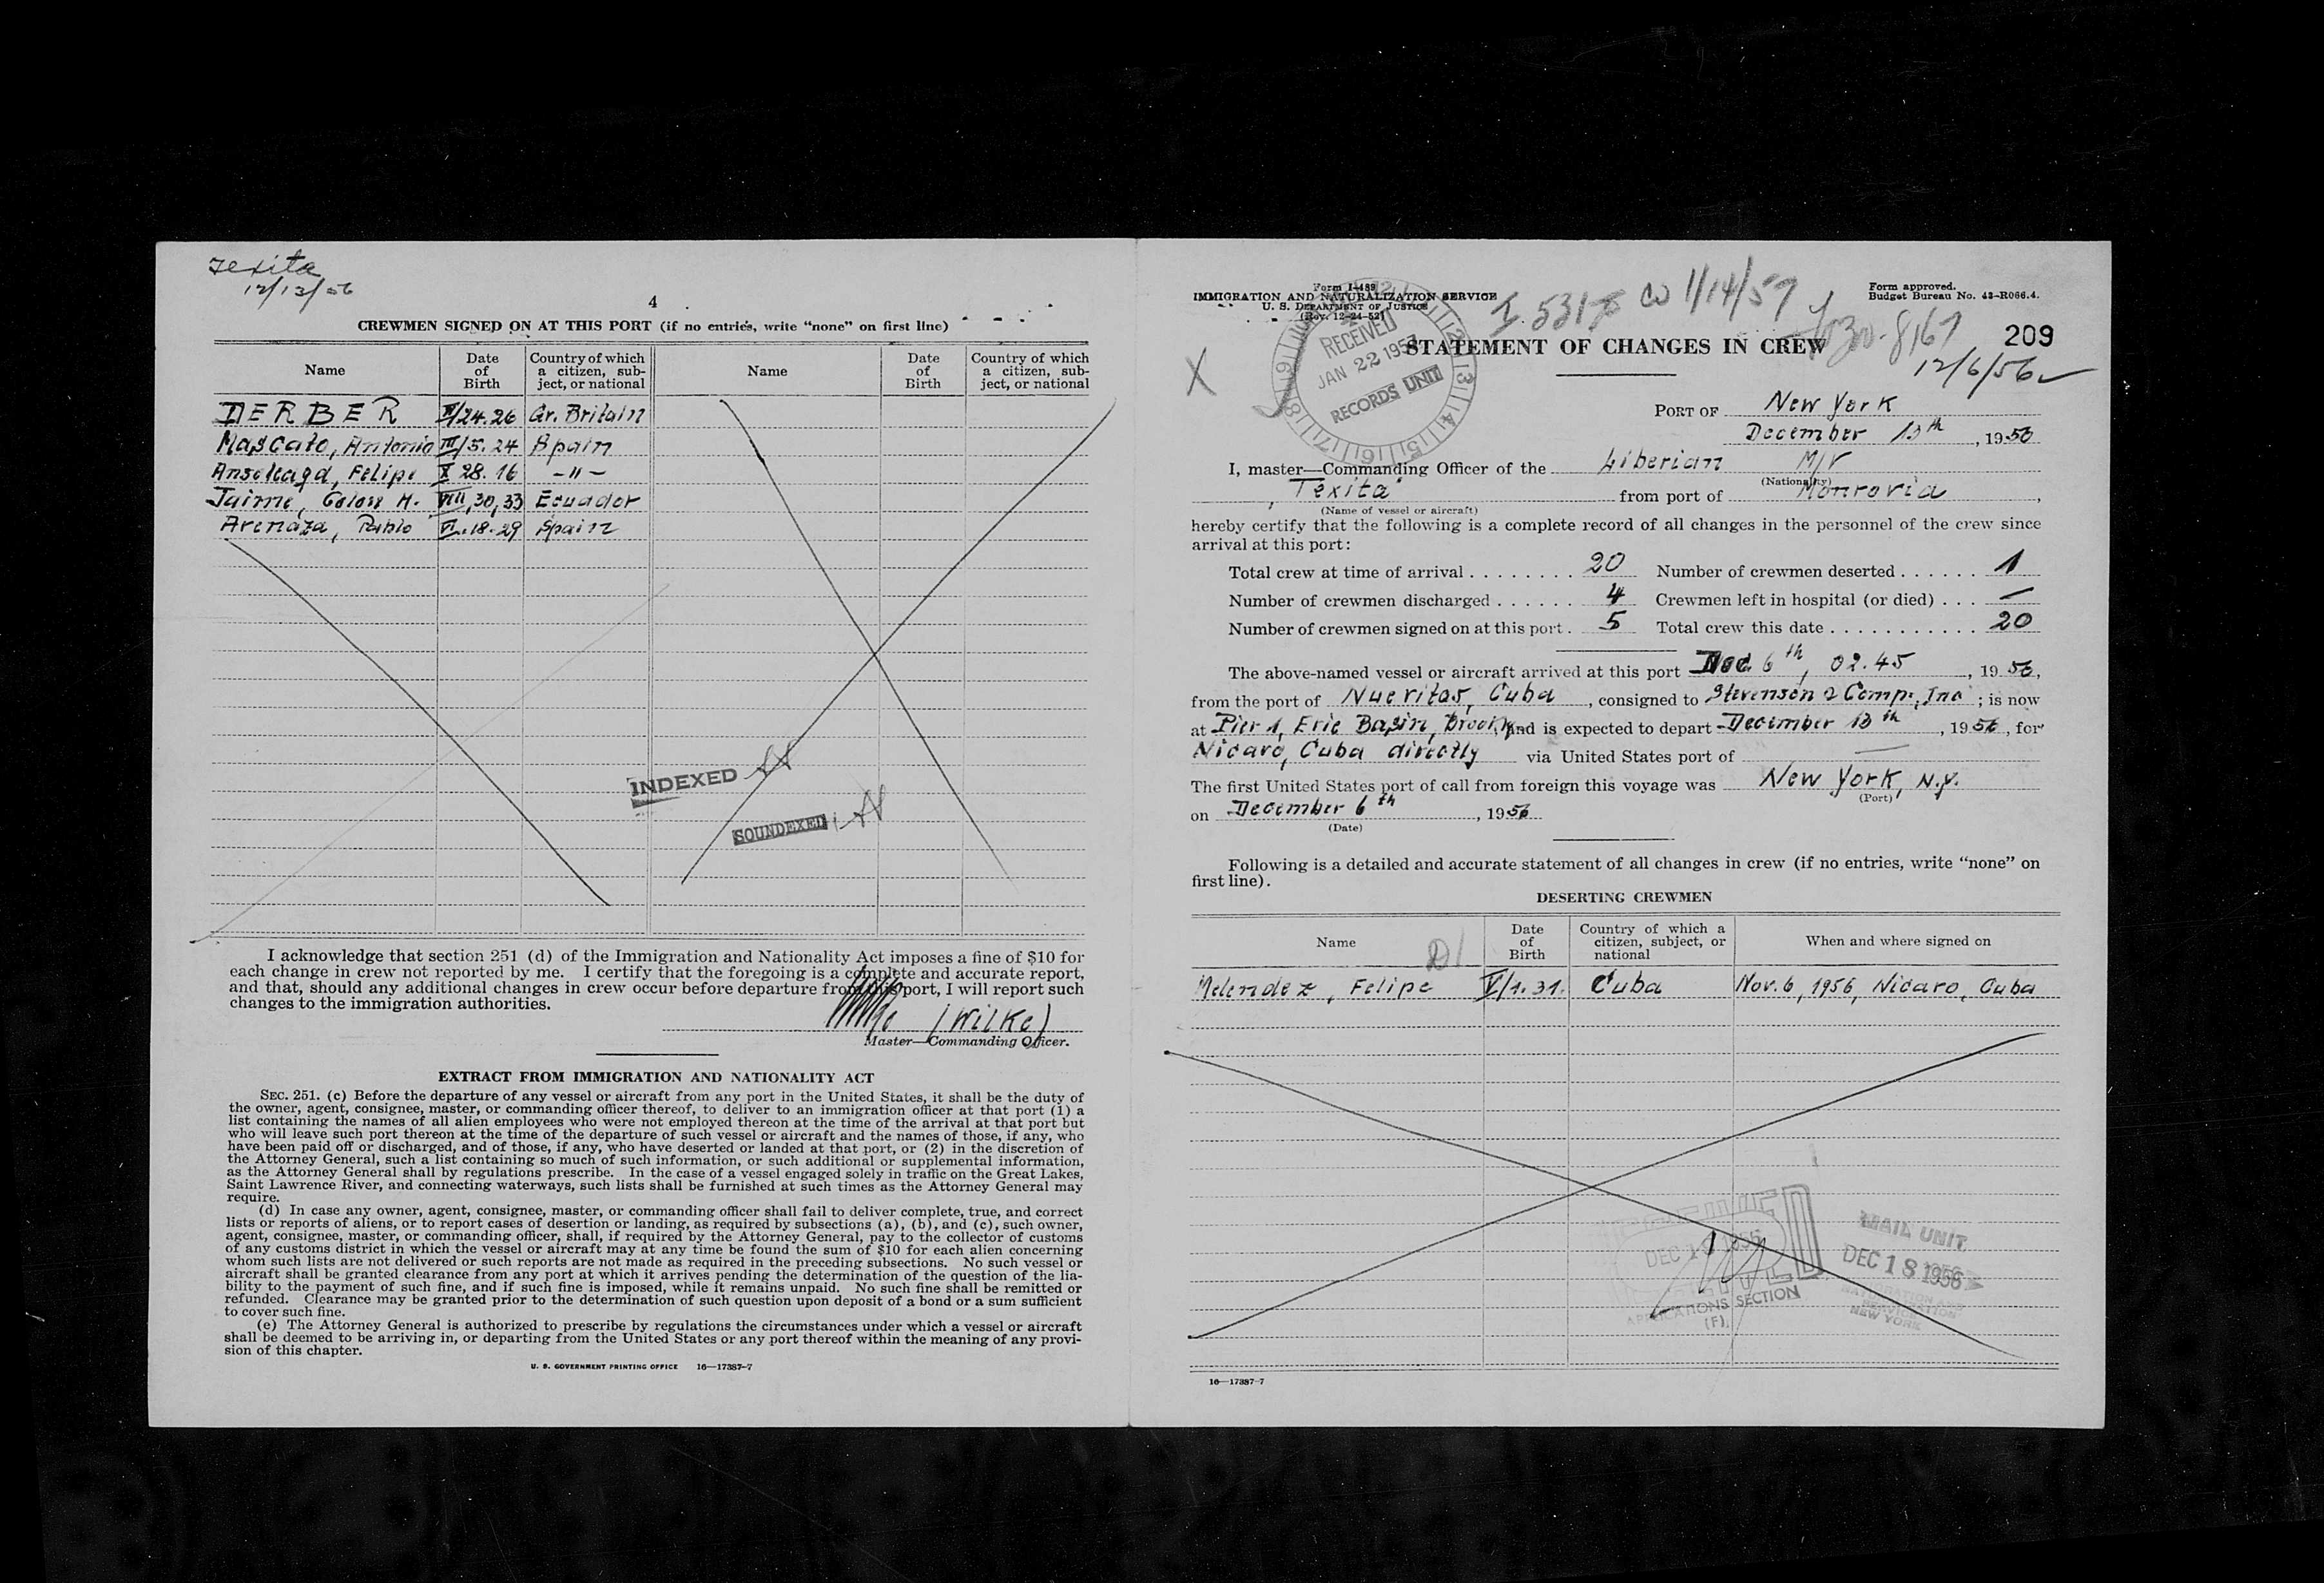 Texita
12/13/56
4
CREWMEN SIGNED ON AT THIS PORT (if no entries, write “none” on first line)
Name Date of Birth Country of which a citizen, subject, or national Name Date of Birth Country of which a citizen, subject, or national
DERBER /24.26 Gr. Britain
Mascato, Antonio III/5.24 Spain
Felipe X 28.16 -"-
Jaime, H. VIII,30,33 Ecuador
Arenaza, Pablo VI.18-29 Spain
INDEXED
SOUNDEXED
I acknowledge that section 251 (d) of the Immigration and Nationality Act imposes a fine of $10 for
each change in crew not reported by me. I certify that the foregoing is a complete and accurate report,
and that, should any additional changes in crew occur before departure from this port, I will report such
changes to the immigration authorities.
(Wilke)
Master—Commanding Officer.
EXTRACT FROM IMMIGRATION AND NATIONALITY ACT
SEC. 251. (c) Before the departure of any vessel or aircraft from any port in the United States, it shall be the duty of
the owner, agent, consignee, master, or commanding officer thereof, to deliver to an immigration officer at that port (1) a
list containing the names of all alien employees who were not employed thereon at the time of the arrival at that port but
who will leave such port thereon at the time of the departure of such vessel or aircraft and the names of those, if any, who
have been paid off or discharged, and of those, if any, who have deserted or landed at that port, or (2) in the discretion of
the Attorney General, such a list containing so much of such information, or such additional or supplemental information,
as the Attorney General shall by regulations prescribe. In the case of a vessel engaged solely in traffic on the Great Lakes,
Saint Lawrence River, and connecting waterways, such lists shall be furnished at such times as the Attorney General may
require.
(d) In case any owner, agent, consignee, master, or commanding officer shall fail to deliver complete, true, and correct
lists or reports of aliens, or to report cases of desertion or landing, as required by subsections (a), (b), and (c), such owner,
agent, consignee, master, or commanding officer, shall, if required by the Attorney General, pay to the collector of customs
of any customs district in which the vessel or aircraft may at any time be found the sum of $10 for each alien concerning
whom such lists are not delivered or such reports are not made as required in the preceding subsections. No such vessel or
aircraft shall be granted clearance from any port at which it arrives pending the determination of the question of the lia-
bility to the payment of such fine, and if such fine is imposed, while it remains unpaid. No such fine shall be remitted or
refunded. Clearance may be granted prior to the determination of such question upon deposit of a bond or a sum sufficient
to cover such fine.
(e) The Attorney General is authorized to prescribe by regulations the circumstances under which a vessel or aircraft
shall be deemed to be arriving in, or departing from the United States or any port thereof within the meaning of any provi-
sion of this chapter.
U. S. GOVERNMENT PRINTING OFFICE 16—17387-7
Form I-489
IMMIGRATION AND NATURALIZATION SERVICE
U. S. DEPARTMENT OF JUSTICE
(Rev. 12-24-52)
RECEIVED
JAN 22 1957
RECORDS UNIT
1/14/57
Form approved.
Budget Bureau No. 43-R066.4.
X
STATEMENT OF CHANGES IN CREW
209
12/6/56
PORT OF New York
December 13th, 1956
I, master—Commanding Officer of the Liberian M/V
(Nationality)
"Texita" from port of Monrovia,
(Name of vessel or aircraft)
hereby certify that the following is a complete record of all changes in the personnel of the crew since
arrival at this port:
Total crew at time of arrival . . . . . . . . 20 Number of crewmen deserted . . . . . . 1
Number of crewmen discharged . . . . . . 4 Crewmen left in hospital (or died) . . . —
Number of crewmen signed on at this port . 5 Total crew this date . . . . . . . . . . . . 20
The above-named vessel or aircraft arrived at this port Dec. 6th, 02.45, 1956,
from the port of Nueritas, Cuba, consigned to Stevenson & Comp., Inc; is now
at Pier 1, Erie Basin, Brookl. and is expected to depart December 13th, 1956, for
Nicaro, Cuba directly via United States port of —
The first United States port of call from foreign this voyage was New York, N.Y.
(Port)
on December 6th, 1956
(Date)
Following is a detailed and accurate statement of all changes in crew (if no entries, write “none” on
first line).
DESERTING CREWMEN
Name Date of Birth Country of which a citizen, subject, or national When and where signed on
Melendez, Felipe V/1.31. Cuba Nov. 6, 1956, Nicaro, Cuba
DEC 1956
SECTION
(F)
MAIL UNIT
DEC 18 1956
NEW YORK
16—17387-7